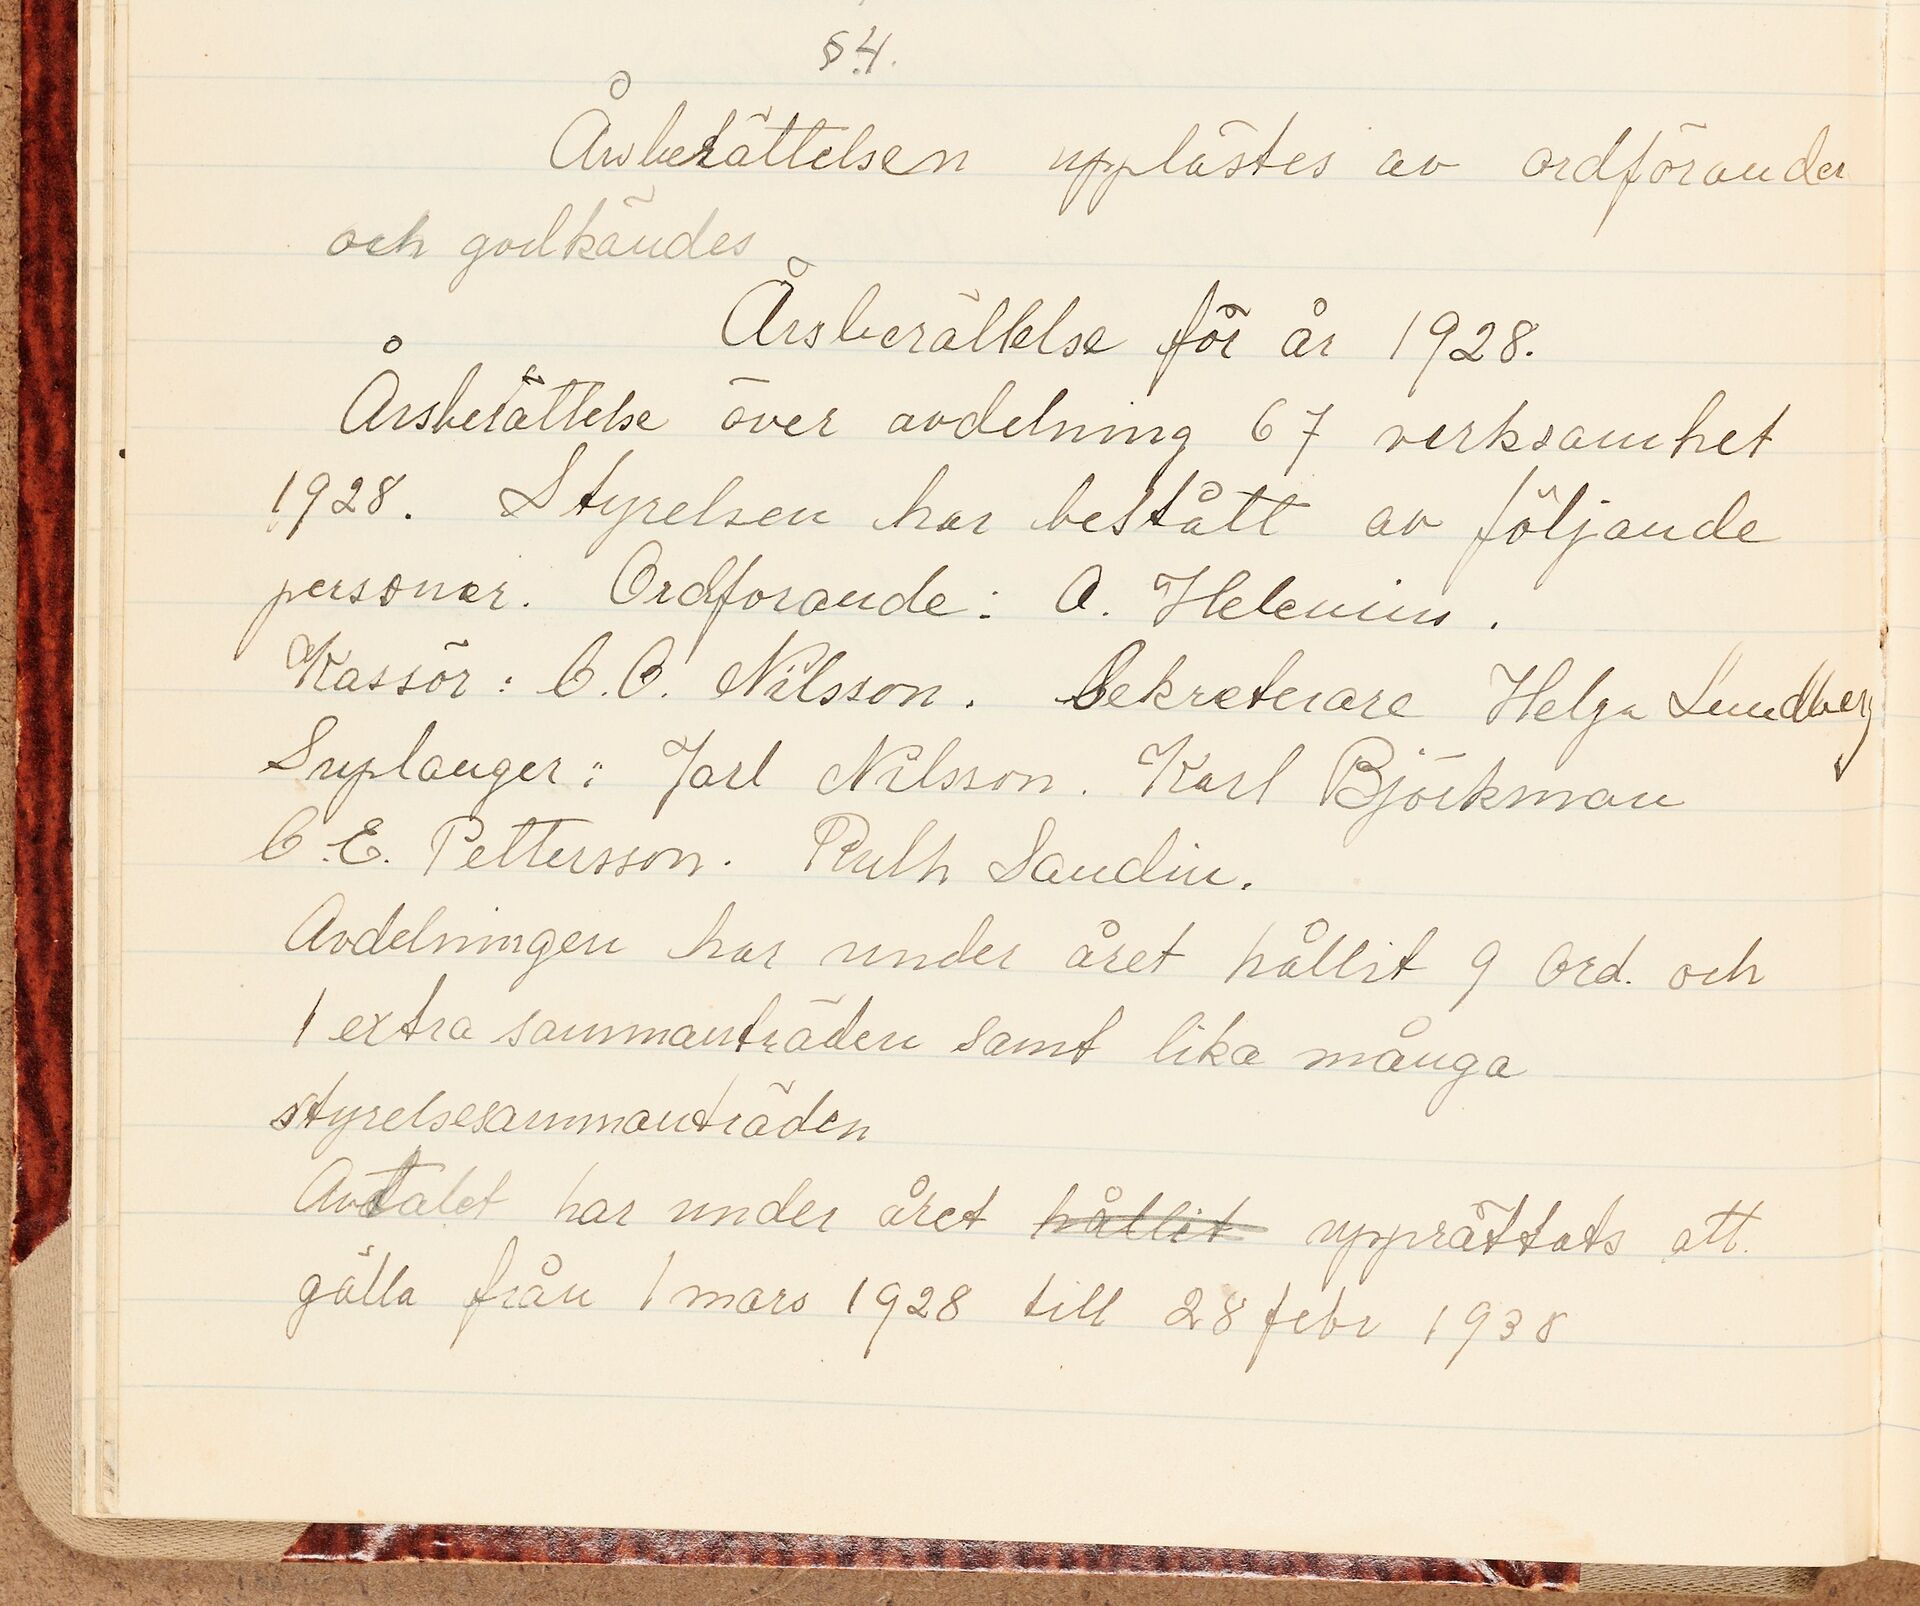 § 4.
Årsberättelsen upplästes av ordföranden
och godkändes
Årsberättelse för år 1928.
Årsberättelse över avdelning 67 verksamhet
1928. Styrelsen har bestått av följande
personer. Ordforande: A. Helenius.
Kassör: C.O. Nilsson. Sekreterare Helga Lundberg
Suplanger: Jarl Nilsson. Karl Björkman
C.E. Pettersson. Ruth Sandin.
Avdelningen har under året hållit 9 Ord. och
1 extra sammanträden samt lika många
styrelsesammanträden
Avtalet har under året hållit upprättats att
gälla från 1 mars 1928 till 28 febr 1938